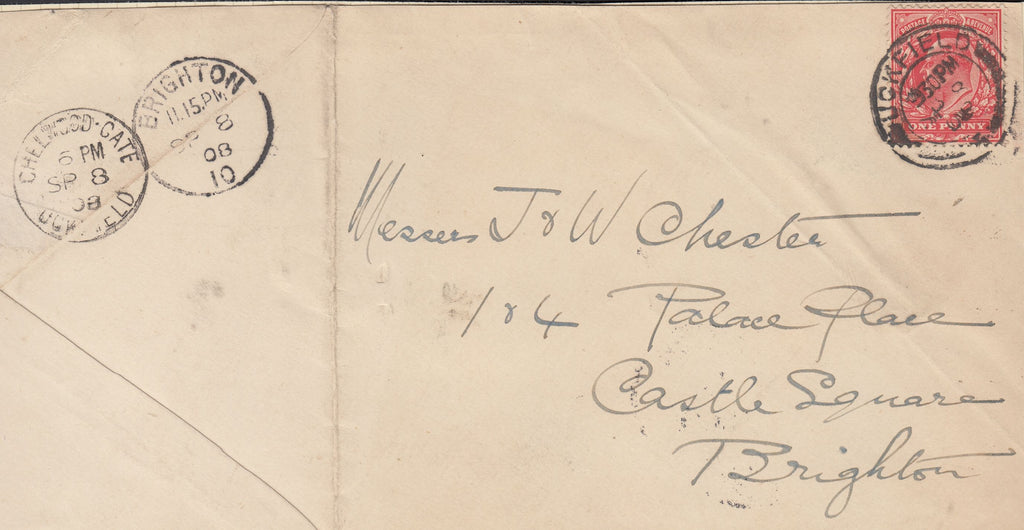 CHELWOOD·GATE
6 PM
SP 8
08
UCKFIELD
BRIGHTON
11.15.PM
SP 8
08
10
POSTAGE & REVENUE
ONE PENNY
UCKFIELD
9 30 PM
Messers J & W Chester
1 & 4 Palace Place
Castle Square
Brighton